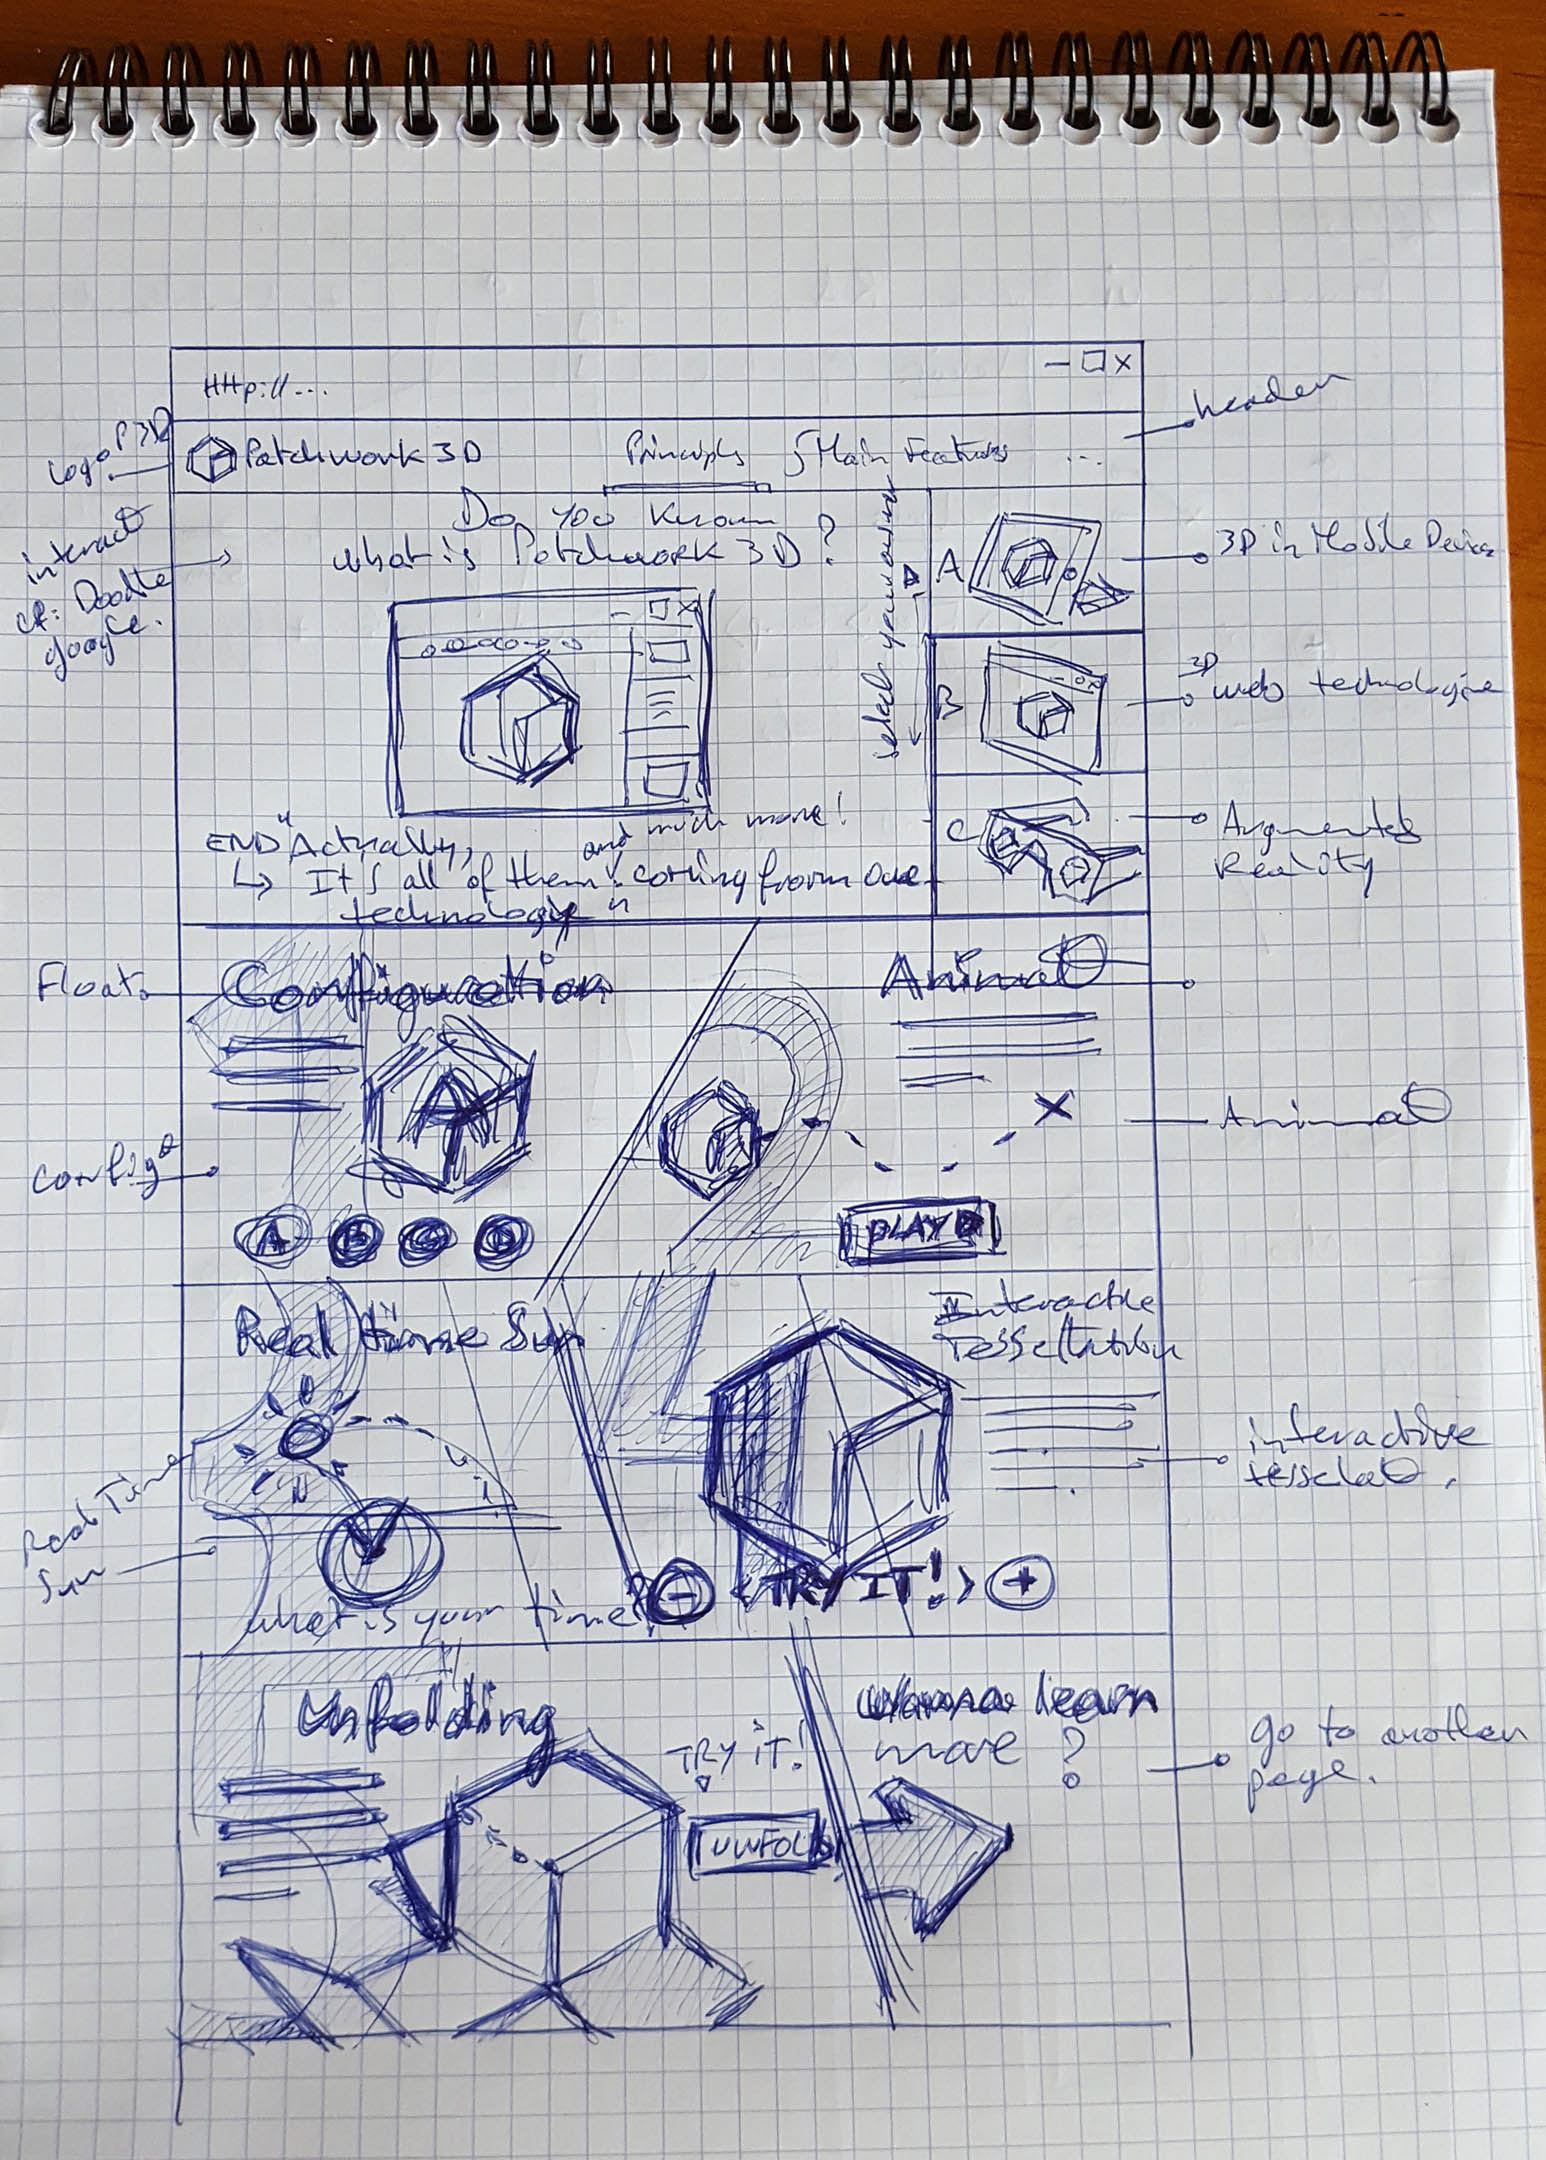 HTTp://...
header
Logo P3D
Patchwork 3D
Principles
Main Features
...
Do you know
what is Patchwork 3D ?
select your answer
interact
cf: Doodle
google.
A
3D in Mobile Device
B
3D
web technologie
C
Augmented
Reality
END "Actually,
and much more!
It's all of them coming from one
technologie"
Float
Configuration
Animat
Config
Animat
A B C D
PLAY
Real time Sun
Interactive
Tessellation
interactive
tesselat
Real Time
Sun
what is your time?
- < TRY IT! > +
Unfolding
TRY IT!
UNFOLD
Wanna learn
more ?
go to another
page.